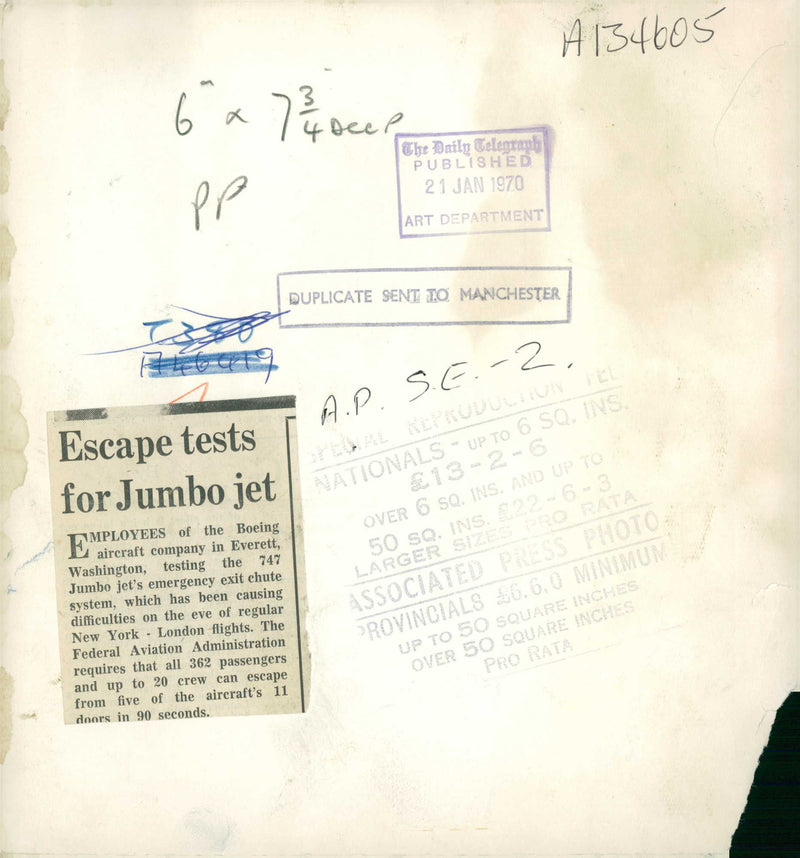 A134605
6" x 7 3/4 DEEP
PP
The Daily Telegraph
PUBLISHED
21 JAN 1970
ART DEPARTMENT
DUPLICATE SENT TO MANCHESTER
A.P. S.E.-2.
Escape tests
for Jumbo jet
EMPLOYEES of the Boeing
aircraft company in Everett,
Washington, testing the 747
Jumbo jet's emergency exit chute
system, which has been causing
difficulties on the eve of regular
New York - London flights. The
Federal Aviation Administration
requires that all 362 passengers
and up to 20 crew can escape
from five of the aircraft's 11
doors in 90 seconds.
SPECIAL REPRODUCTION FEE
NATIONALS - UP TO 6 SQ. INS.
£13-2-6
OVER 6 SQ. INS. AND UP TO
50 SQ. INS. £22-6-3
LARGER SIZES PRO RATA
ASSOCIATED PRESS PHOTO
PROVINCIALS £6.6.0 MINIMUM
UP TO 50 SQUARE INCHES
OVER 50 SQUARE INCHES
PRO RATA